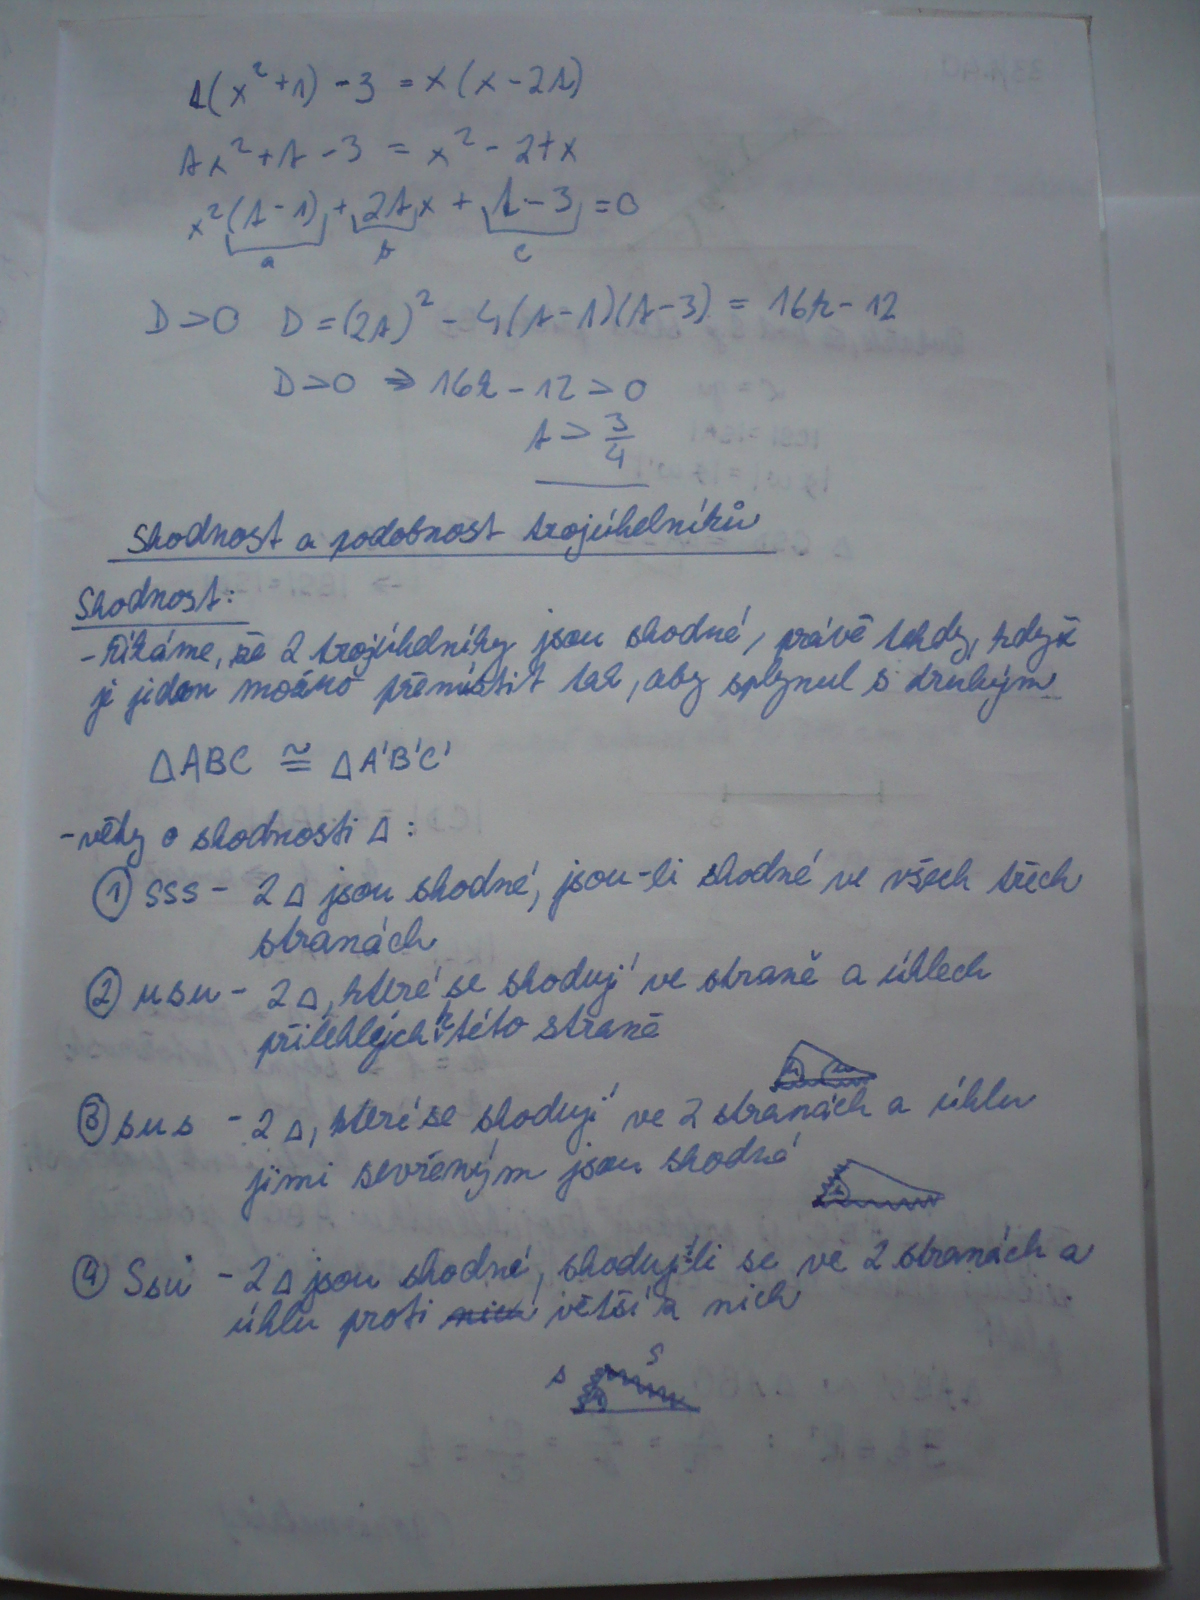 t(x²+1) - 3 = x(x - 2t)
tx² + t - 3 = x² - 2tx
x²(t - 1) + 2tx + t - 3 = 0
a b c
D > 0 D = (2t)² - 4(t-1)(t-3) = 16t - 12
D > 0 ⇒ 16t - 12 > 0
t > 3/4
Shodnost a podobnost trojúhelníků
Shodnost:
- říkáme, že 2 trojúhelníky jsou shodné, právě tehdy, když
je jeden možno přemístit tak, aby splynul s druhým
△ABC ≅ △A'B'C'
- věty o shodnosti △:
① sss - 2△ jsou shodné, jsou-li shodné ve všech třech
stranách
② usu - 2△, které se shodují ve straně a úhlech
přilehlých k této straně
③ sus - 2△, které se shodují ve 2 stranách a úhlu
jimi sevřeným jsou shodné
④ Ssu - 2△ jsou shodné, shodují-li se ve 2 stranách a
úhlu proti větší z nich
s S